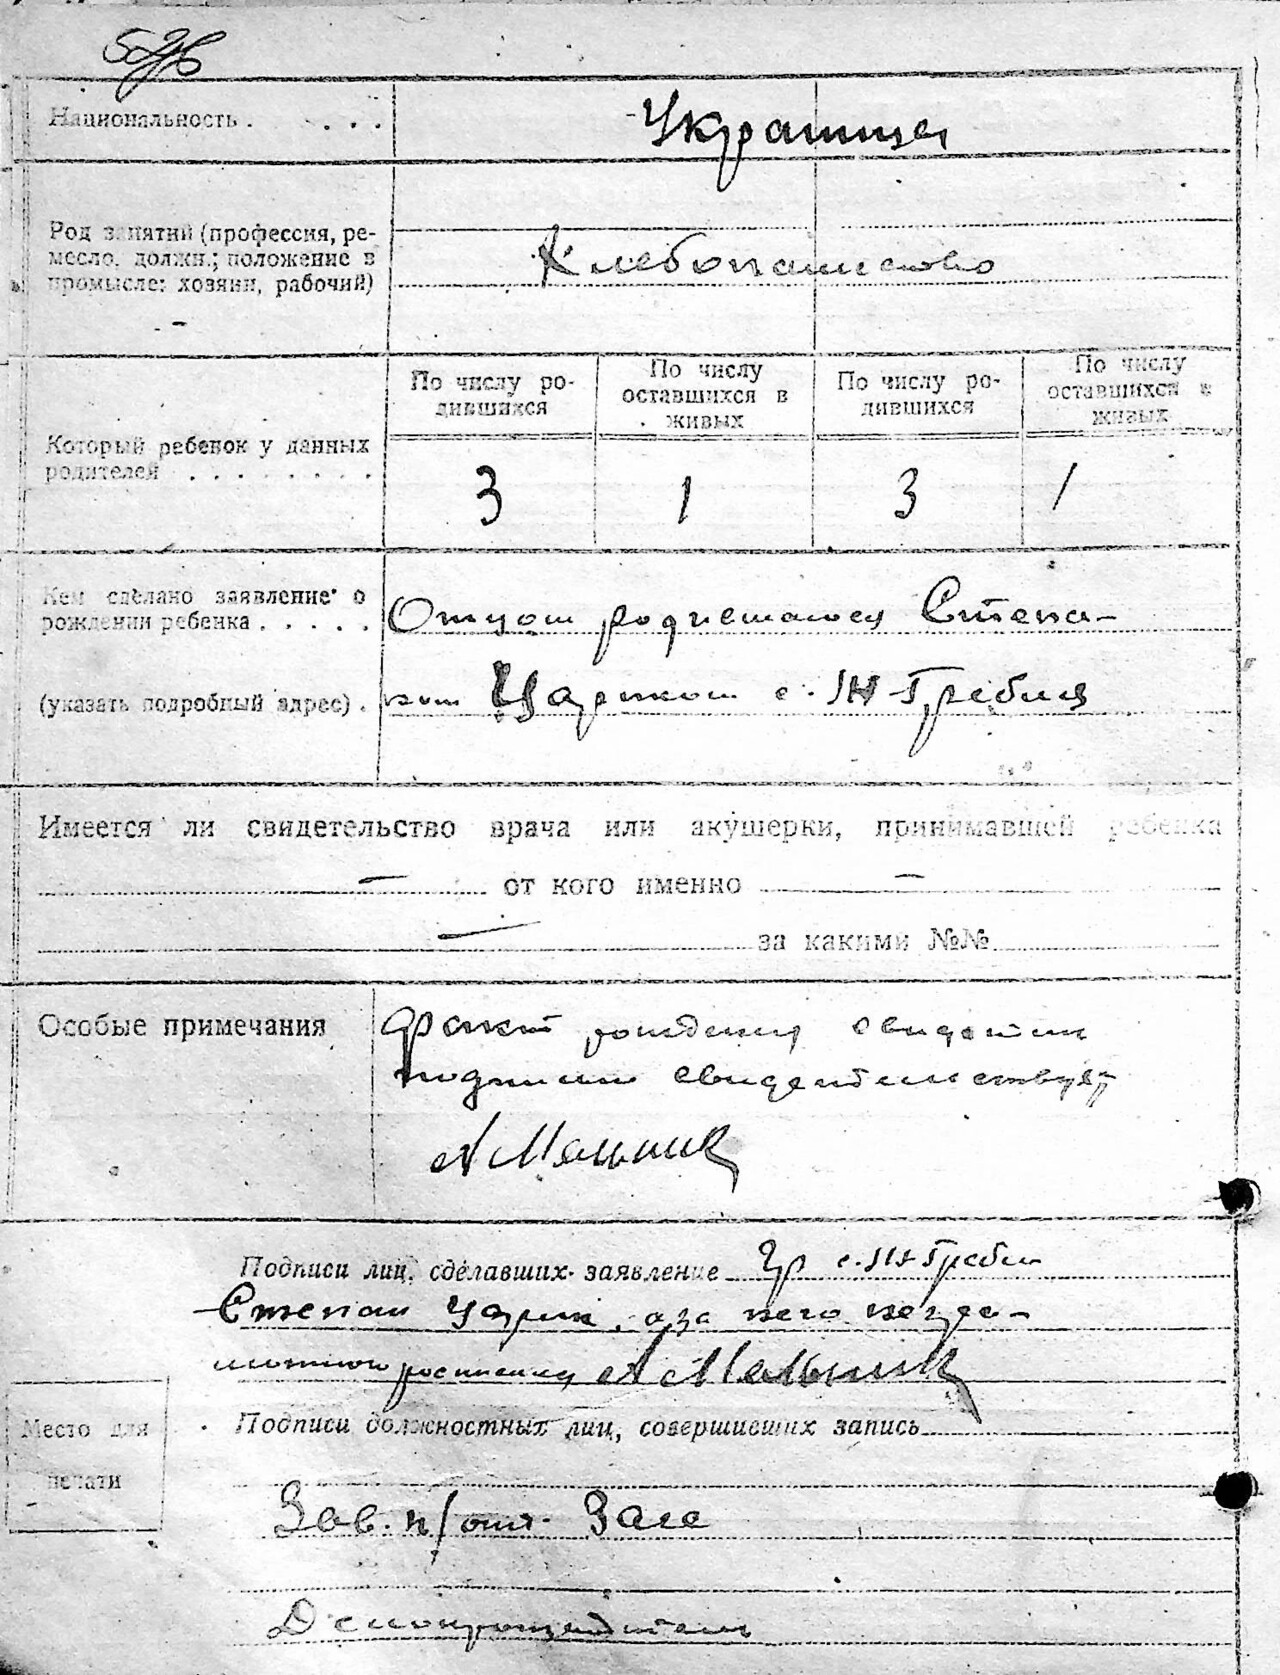 Национальность . . . . Украинцы
Род занятий (профессия, ре-
месло, должн.; положение в
промысле: хозяин, рабочий)
Хлебопашество
По числу ро-
дившихся
По числу
оставшихся в
живых
По числу ро-
дившихся
По числу
оставшихся в
живых
Который ребенок у данных
родителей . . . . . . . .
3 1 3 1
Кем сделано заявление о
рождении ребенка . . . . .
Отцом родившегося Степа-
(указать подробный адрес) . ном Цариком с. Н-Гребля
Имеется ли свидетельство врача или акушерки, принимавшей ребенка
— от кого именно —
— за какими №№
Особые примечания
Факт рождения
свидетельствует
А Мельник
Подписи лиц, сделавших заявление Гр с. Н-Гребли
Степан Царик, а за него негра-
мотного А Мельник
Место для
печати
Подписи должностных лиц, совершивших запись
Зав. п/отд. Загс